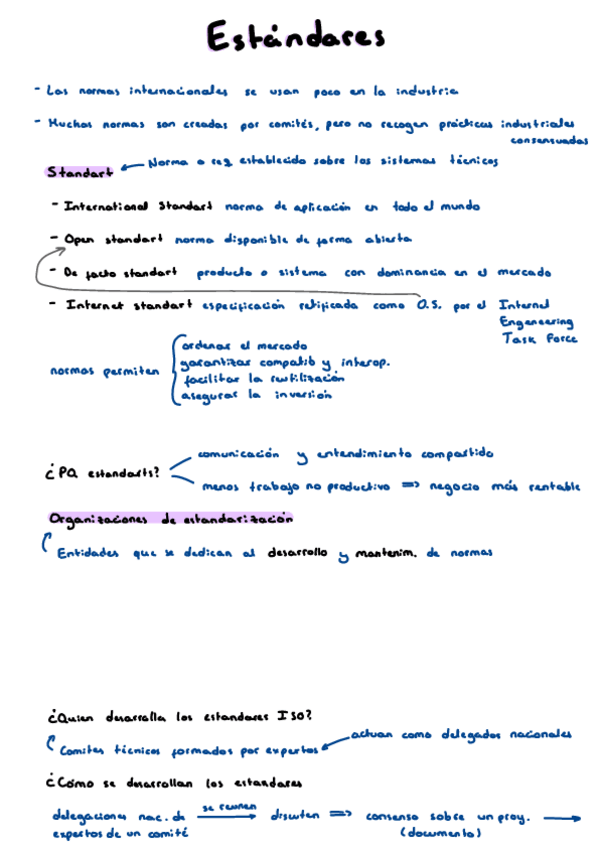 Estándares
- Las normas internacionales se usan poco en la industria
- Muchas normas son creadas por comités, pero no recogen prácticas industriales
consensuadas
Standart ← Norma o req establecido sobre los sistemas técnicos
- International Standart norma de aplicación en todo el mundo
- Open standart norma disponible de forma abierta
- De facto standart producto o sistema con dominancia en el mercado
- Internet standart especificación ratificada como O.S. por el Internet
Engeneering
Task Force
normas permiten
ordenar el mercado
garantizar compatib y interop.
facilitar la reutilización
asegurar la inversión
¿PQ estandarts?
comunicación y entendimiento compartido
menos trabajo no productivo => negocio más rentable
Organizaciones de estandarización
Entidades que se dedican al desarrollo y mantenim. de normas
¿Quien desarrolla los estandares ISO?
actuan como delegados nacionales
Comites técnicos formados por expertos
¿Cómo se desarrollan los estandares
delegaciones nac. de
expertos de un comité
se reunen
discuten => consenso sobre un proy. →
(documento)